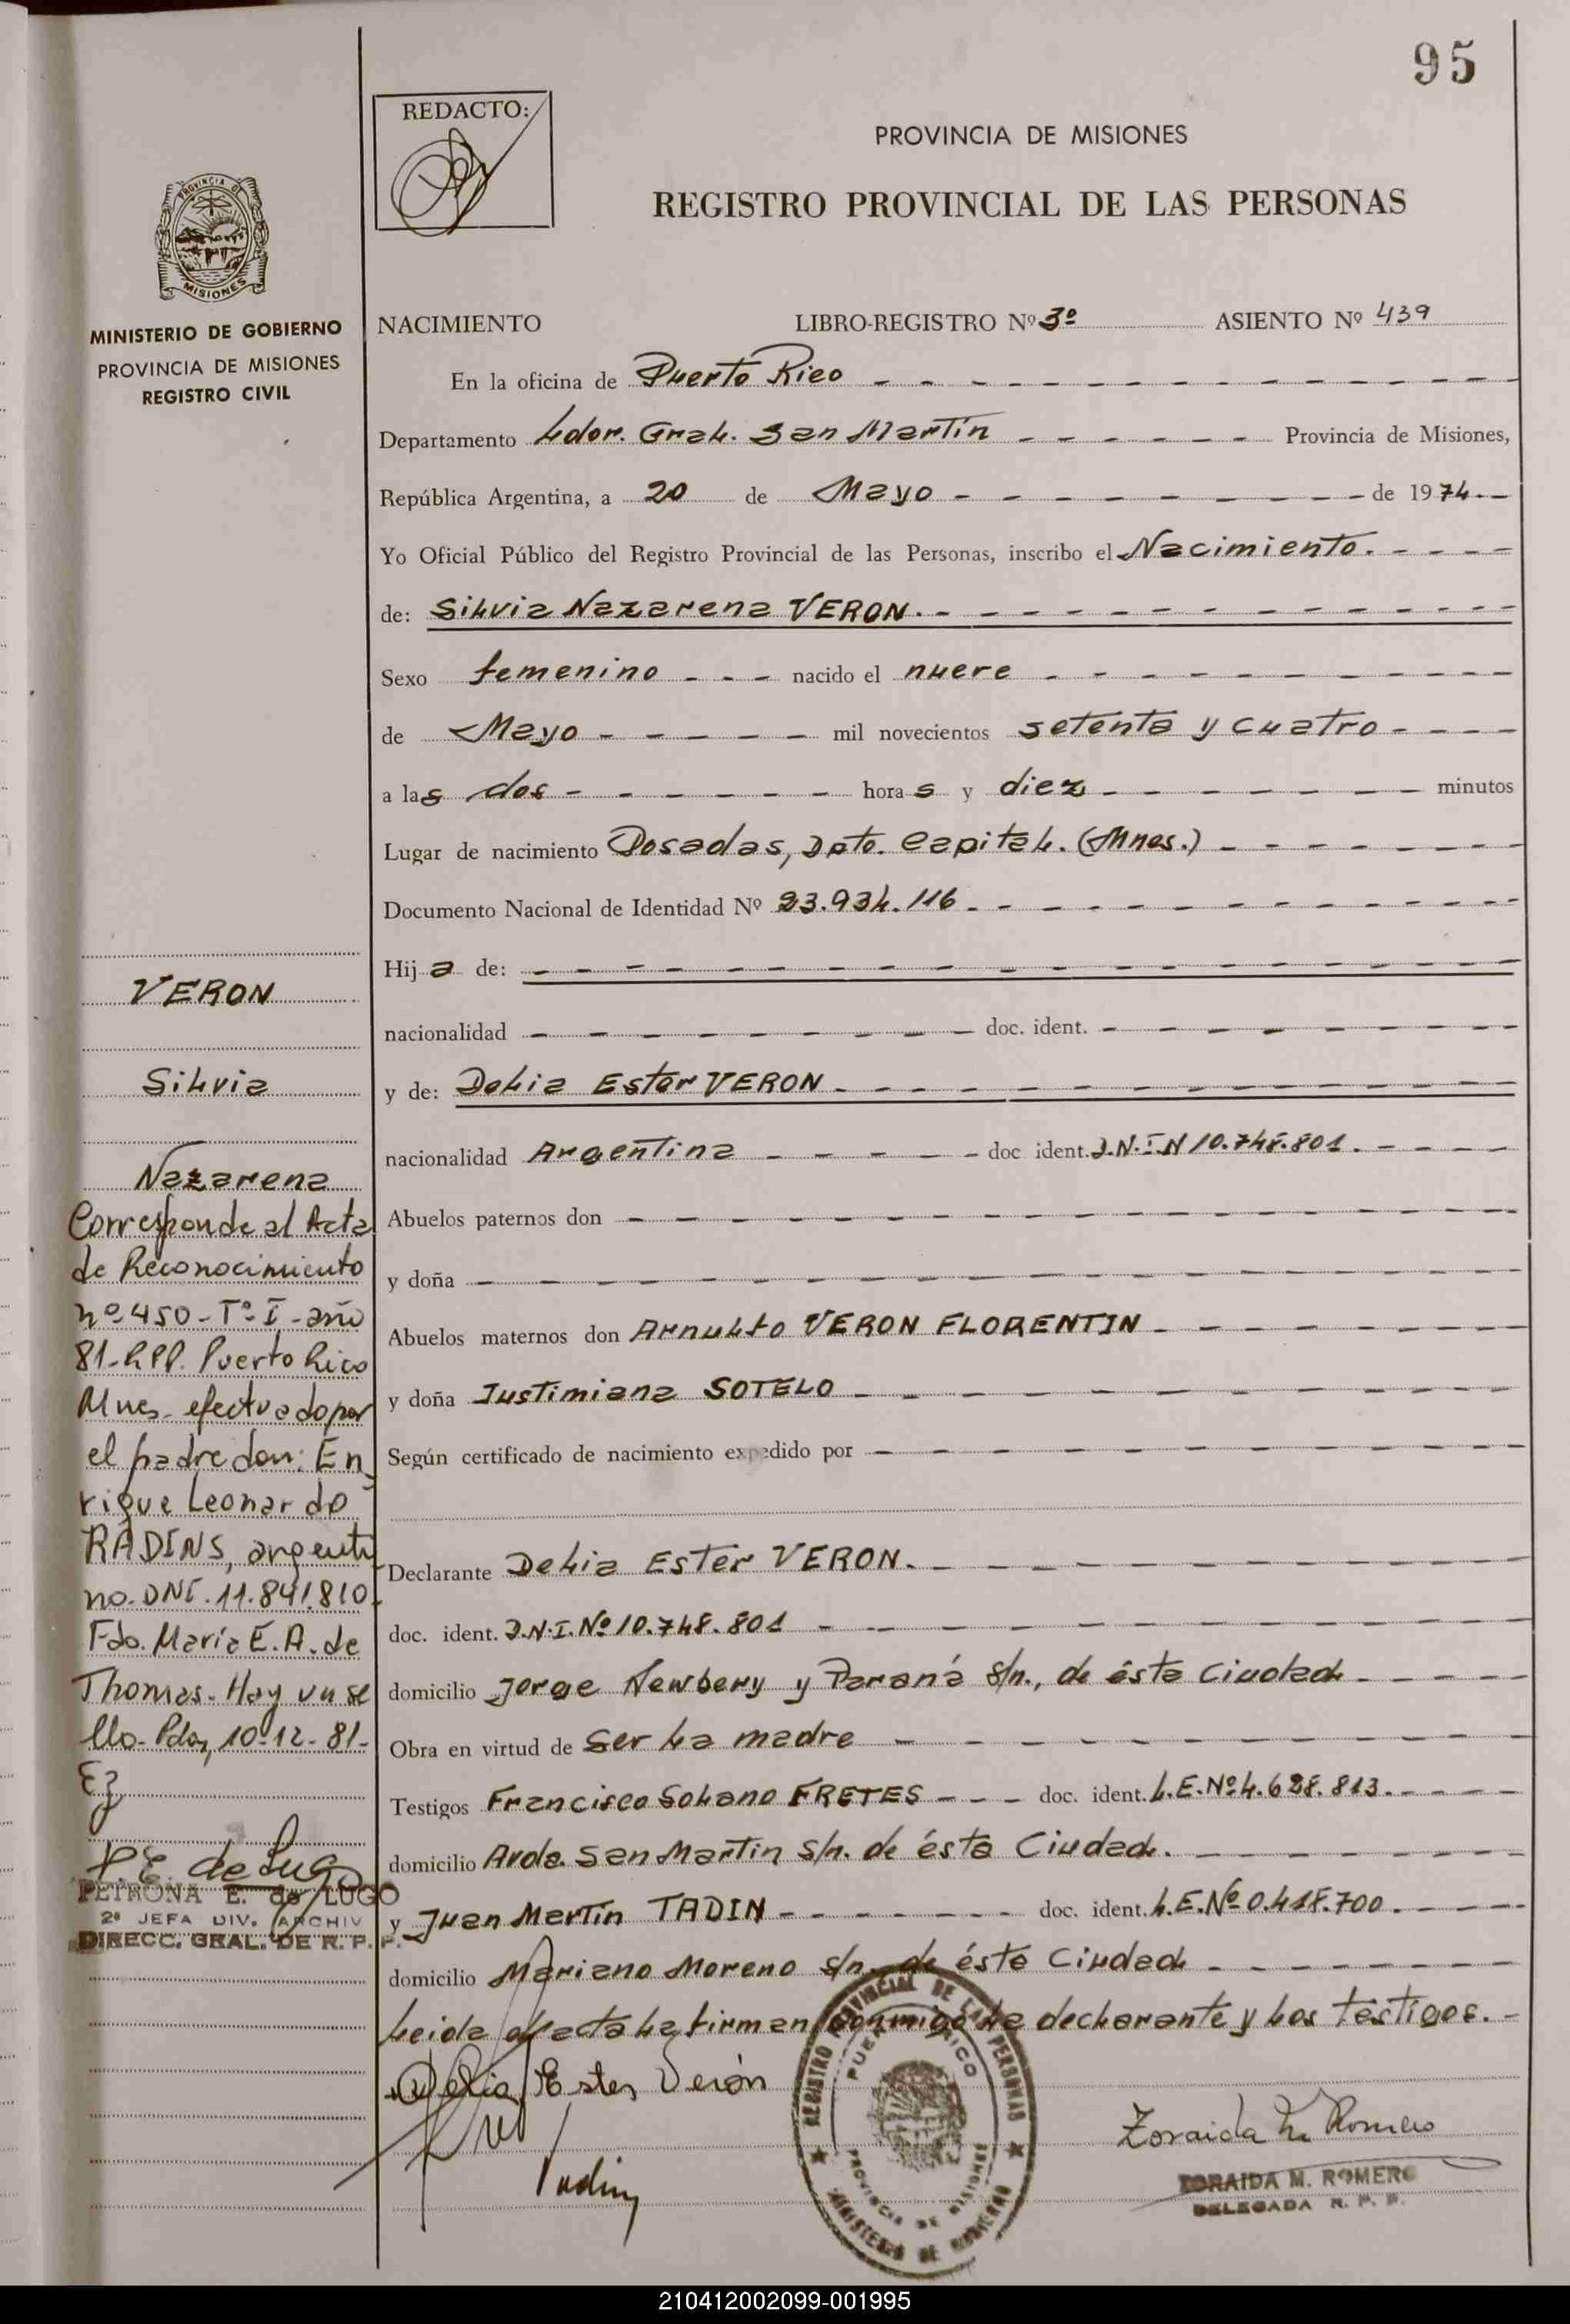 95
REDACTO:
PROVINCIA DE MISIONES
REGISTRO PROVINCIAL DE LAS PERSONAS
PROVINCIA DE
MISIONES
MINISTERIO DE GOBIERNO
PROVINCIA DE MISIONES
REGISTRO CIVIL
NACIMIENTO LIBRO-REGISTRO Nº 3º ASIENTO Nº 439
En la oficina de Puerto Rico
Departamento Ldor. Gral. San Martín Provincia de Misiones,
República Argentina, a 20 de Mayo de 1974.
Yo Oficial Público del Registro Provincial de las Personas, inscribo el Nacimiento.
de: Silvia Nazarena VERON.
Sexo femenino nacido el nueve
de Mayo mil novecientos setenta y cuatro
a las dos horas y diez minutos
Lugar de nacimiento Posadas, Dpto. Capital. (Mnes.)
Documento Nacional de Identidad Nº 23.934.116
Hija de:
nacionalidad doc. ident.
y de: Delia Ester VERON
nacionalidad Argentina doc ident. D.N.I.N 10.748.801.
Abuelos paternos don
y doña
Abuelos maternos don Arnulfo VERON FLORENTIN
y doña Justimiana SOTELO
Según certificado de nacimiento expedido por
Declarante Delia Ester VERON.
doc. ident. D.N.I.Nº 10.748.801
domicilio Jorge Newbery y Paraná s/n., de ésta Ciudad
Obra en virtud de ser la madre
Testigos Francisco Solano FRETES doc. ident. L.E.Nº 4.628.813.
domicilio Avda. San Martin s/n. de ésta Ciudad.
y Juan Martín TADIN doc. ident. L.E.Nº 0.418.700.
domicilio Mariano Moreno s/n. de ésta Ciudad
Leida el acta la firman conmigo la declarante y los testigos.
Delia Ester Verón
Tadin
Zoraida M. Romero
ZORAIDA M. ROMERO
DELEGADA R. P. P.
REGISTRO PROVINCIAL DE LAS PERSONAS
PUERTO RICO
PROVINCIA DE MISIONES
MINISTERIO DE GOBIERNO
VERON
Silvia
Nazarena
Corresponde al Acta
de Reconocimiento
nº 450-Tº I-año
81-RPP. Puerto Rico
Mnes- efectuado por
el padre don: En
rique Leonardo
RADINS, argenti
no. DNI. 11.841.810
Fdo. María E. A. de
Thomas. Hay un se
llo. Pdas, 10-12-81-
Ez
P.E. de Lugo
PETRONA E. de LUGO
2ª JEFA DIV. ARCHIV
DIRECC. GRAL. DE R. P. P.
210412002099-001995